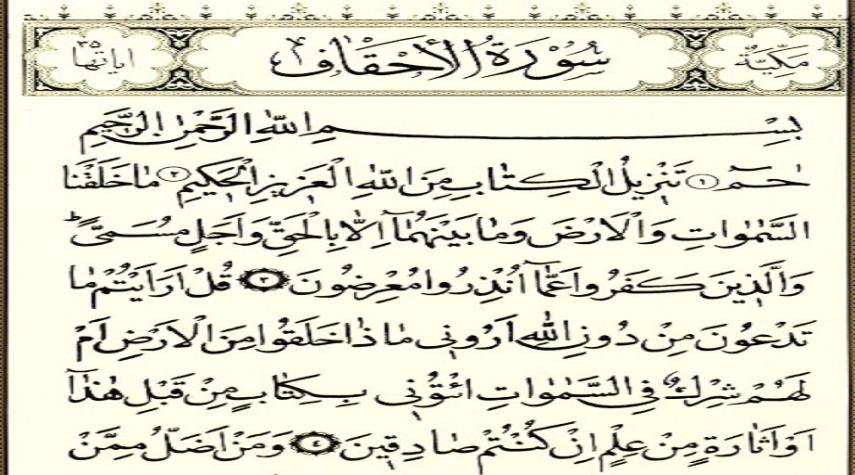 مكية سورة الأحقاف اياتها ٣٥
بسم الله الرحمن الرحيم
حم ١ تنزيل الكتاب من الله العزيز الحكيم ٢ ما خلقنا
السموات والارض وما بينهما الا بالحق واجل مسمى ط
والذين كفروا عما انذروا معرضون ٣ قل ارايتم ما
تدعون من دون الله اروني ماذا خلقوا من الارض ام
لهم شرك في السموات ائتوني بكتاب من قبل هذا
او اثارة من علم ان كنتم صادقين ٤ ومن اضل ممن